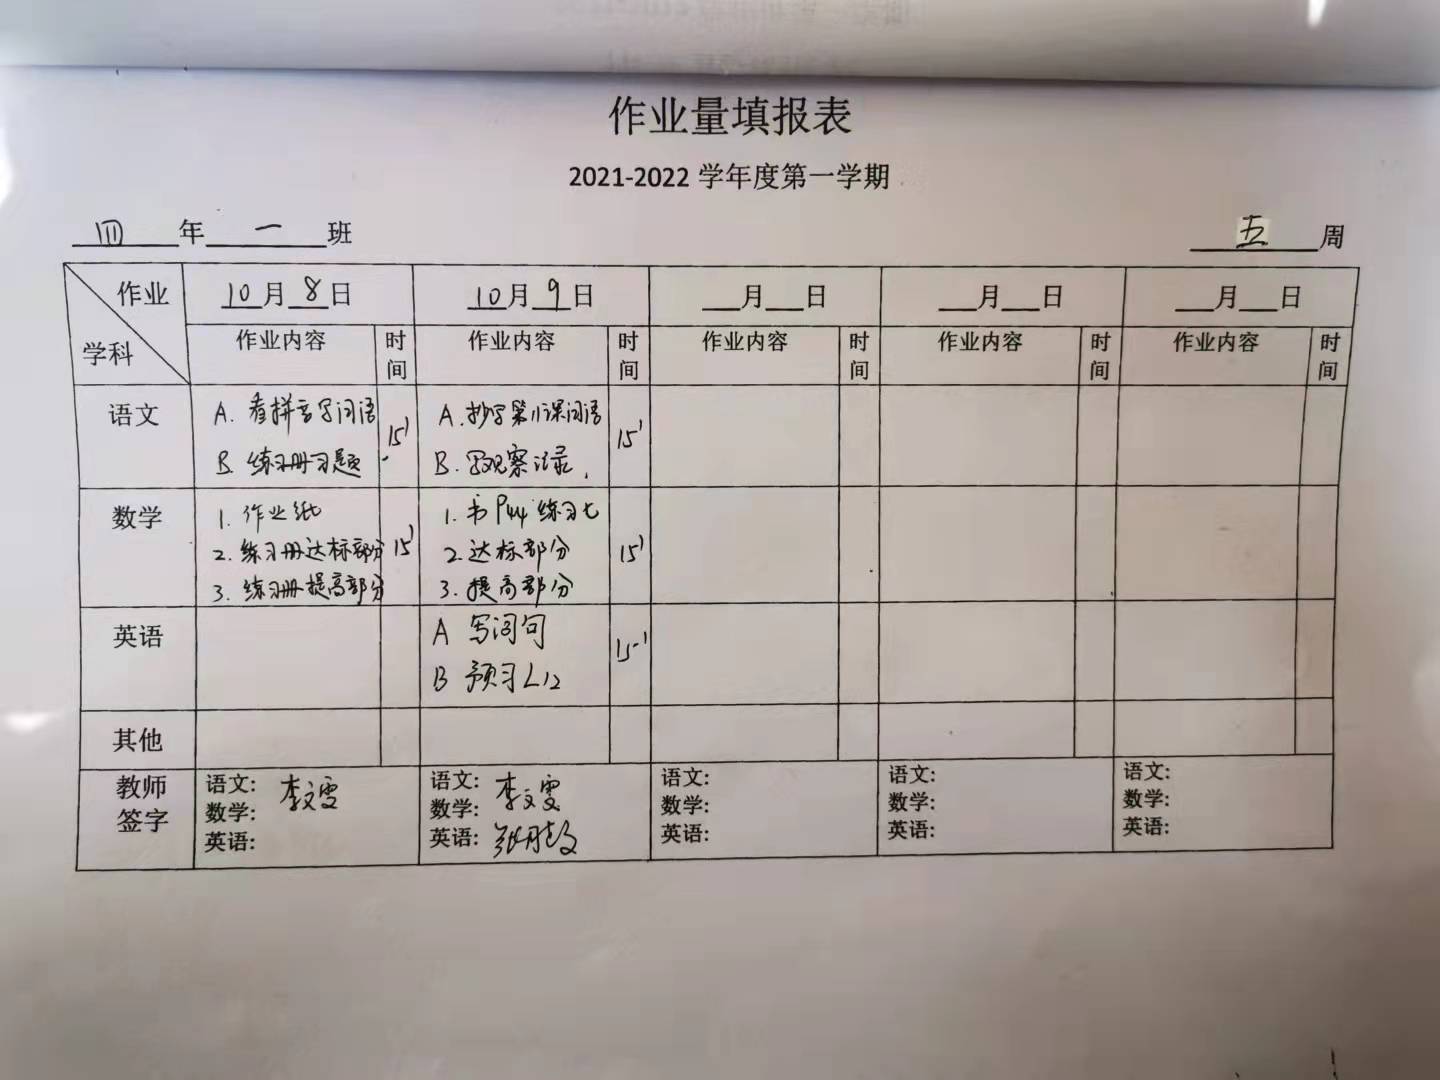 作业量填报表
2021-2022 学年度第一学期
四 年 一 班
五 周
作业
学科
10月8日
10月9日
月 日
月 日
月 日
作业内容 时间
作业内容 时间
作业内容 时间
作业内容 时间
作业内容 时间
语文
A. 看拼音写词语
B. 练习册习题
15'
A. 抄写第11课词语
B. 写观察记录.
15'
数学
1. 作业纸
2. 练习册达标部分
3. 练习册提高部分
15'
1. 书P44 练习七
2. 达标部分
3. 提高部分
15'
英语
A 写词句
B 预习L12
15'
其他
教师
签字
语文: 李文雯
数学:
英语:
语文: 李文雯
数学:
英语:
语文:
数学:
英语:
语文:
数学:
英语:
语文:
数学:
英语: